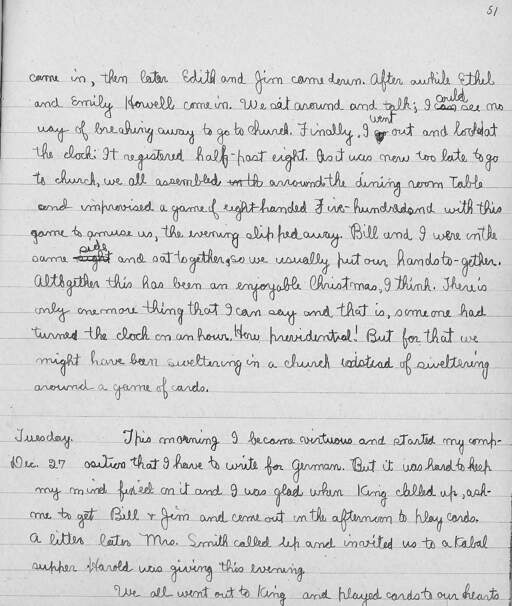 51
came in, then later Edith and Jim came down. After awhile Ethel
and Emily Howell came in. We sat around and talk; I could see no
way of breaking away to go to church. Finally, I went out and looked at
the clock: It registered half-past eight. As it was now too late to go
to church, we all assembled arround the dining room table
and improvised a game of eight handed Five-hundred and with this
game to amuse us, the evening slipped away. Bill and I were on the
same side and sat together, so we usually put our hands to-gether.
Altogether this has been an enjoyable Christmas, I think. There is
only one more thing that I can say and that is, some one had
turned the clock on an hour. How providential! But for that we
might have been sweltering in a church instead of sweltering
around a game of cards.
Tuesday. This morning I became virtuous and started my comp-
Dec. 27 osition that I have to write for German. But it was hard to keep
my mind fixed on it and I was glad when King called up, ask-
me to get Bill & Jim and come out in the afternoon to play cards.
A litter later Mrs. Smith called up and invited us to a
supper Harold was giving this evening
We all went out to King and played cards to our hearts